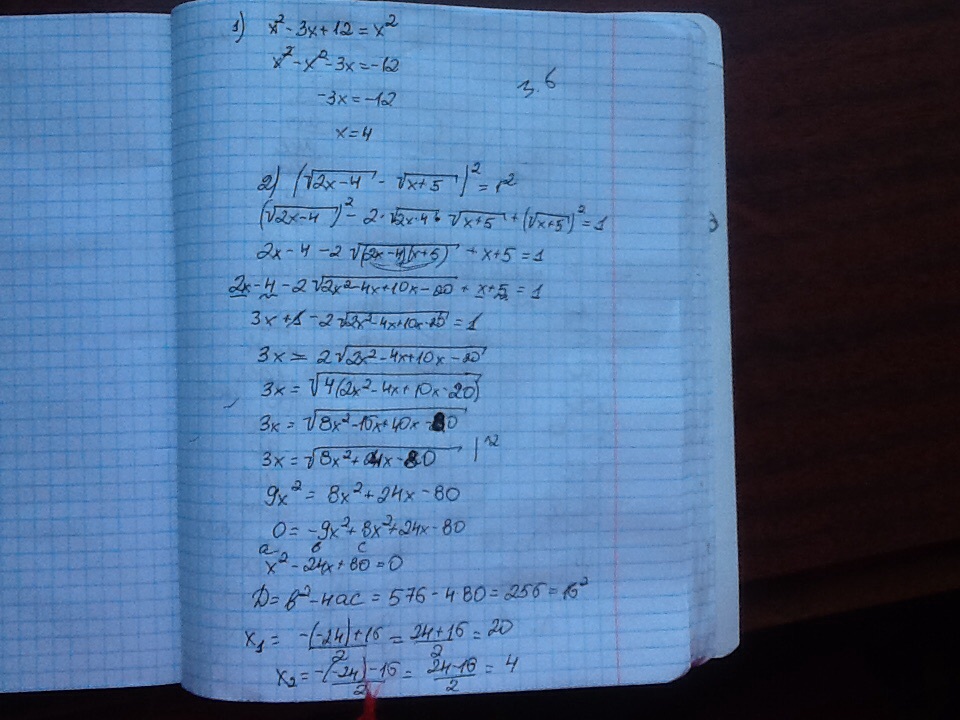 1) x² - 3x + 12 = x²
x² - x² - 3x = -12
-3x = -12
x = 4
2) (√(2x-4) - √(x+5))² = 1²
(√(2x-4))² - 2·√(2x-4)·√(x+5) + (√(x+5))² = 1
2x - 4 - 2√((2x-4)(x+5)) + x+5 = 1
2x - 4 - 2√(2x²-4x+10x-20) + x+5 = 1
3x + 1 - 2√(2x²-4x+10x-20) = 1
3x = 2√(2x²-4x+10x-20)
3x = √(4(2x²-4x+10x-20))
3x = √(8x²-16x+40x-80)
3x = √(8x²+24x-80) |²
9x² = 8x²+24x-80
0 = -9x²+8x²+24x-80
a в c
x² - 24x + 80 = 0
D = в² - 4ac = 576 - 480 = 256 = 16²
x₁ = (-(-24)+16)/2 = (24+16)/2 = 20
x₂ = (-(-24)-16)/2 = (24-16)/2 = 4